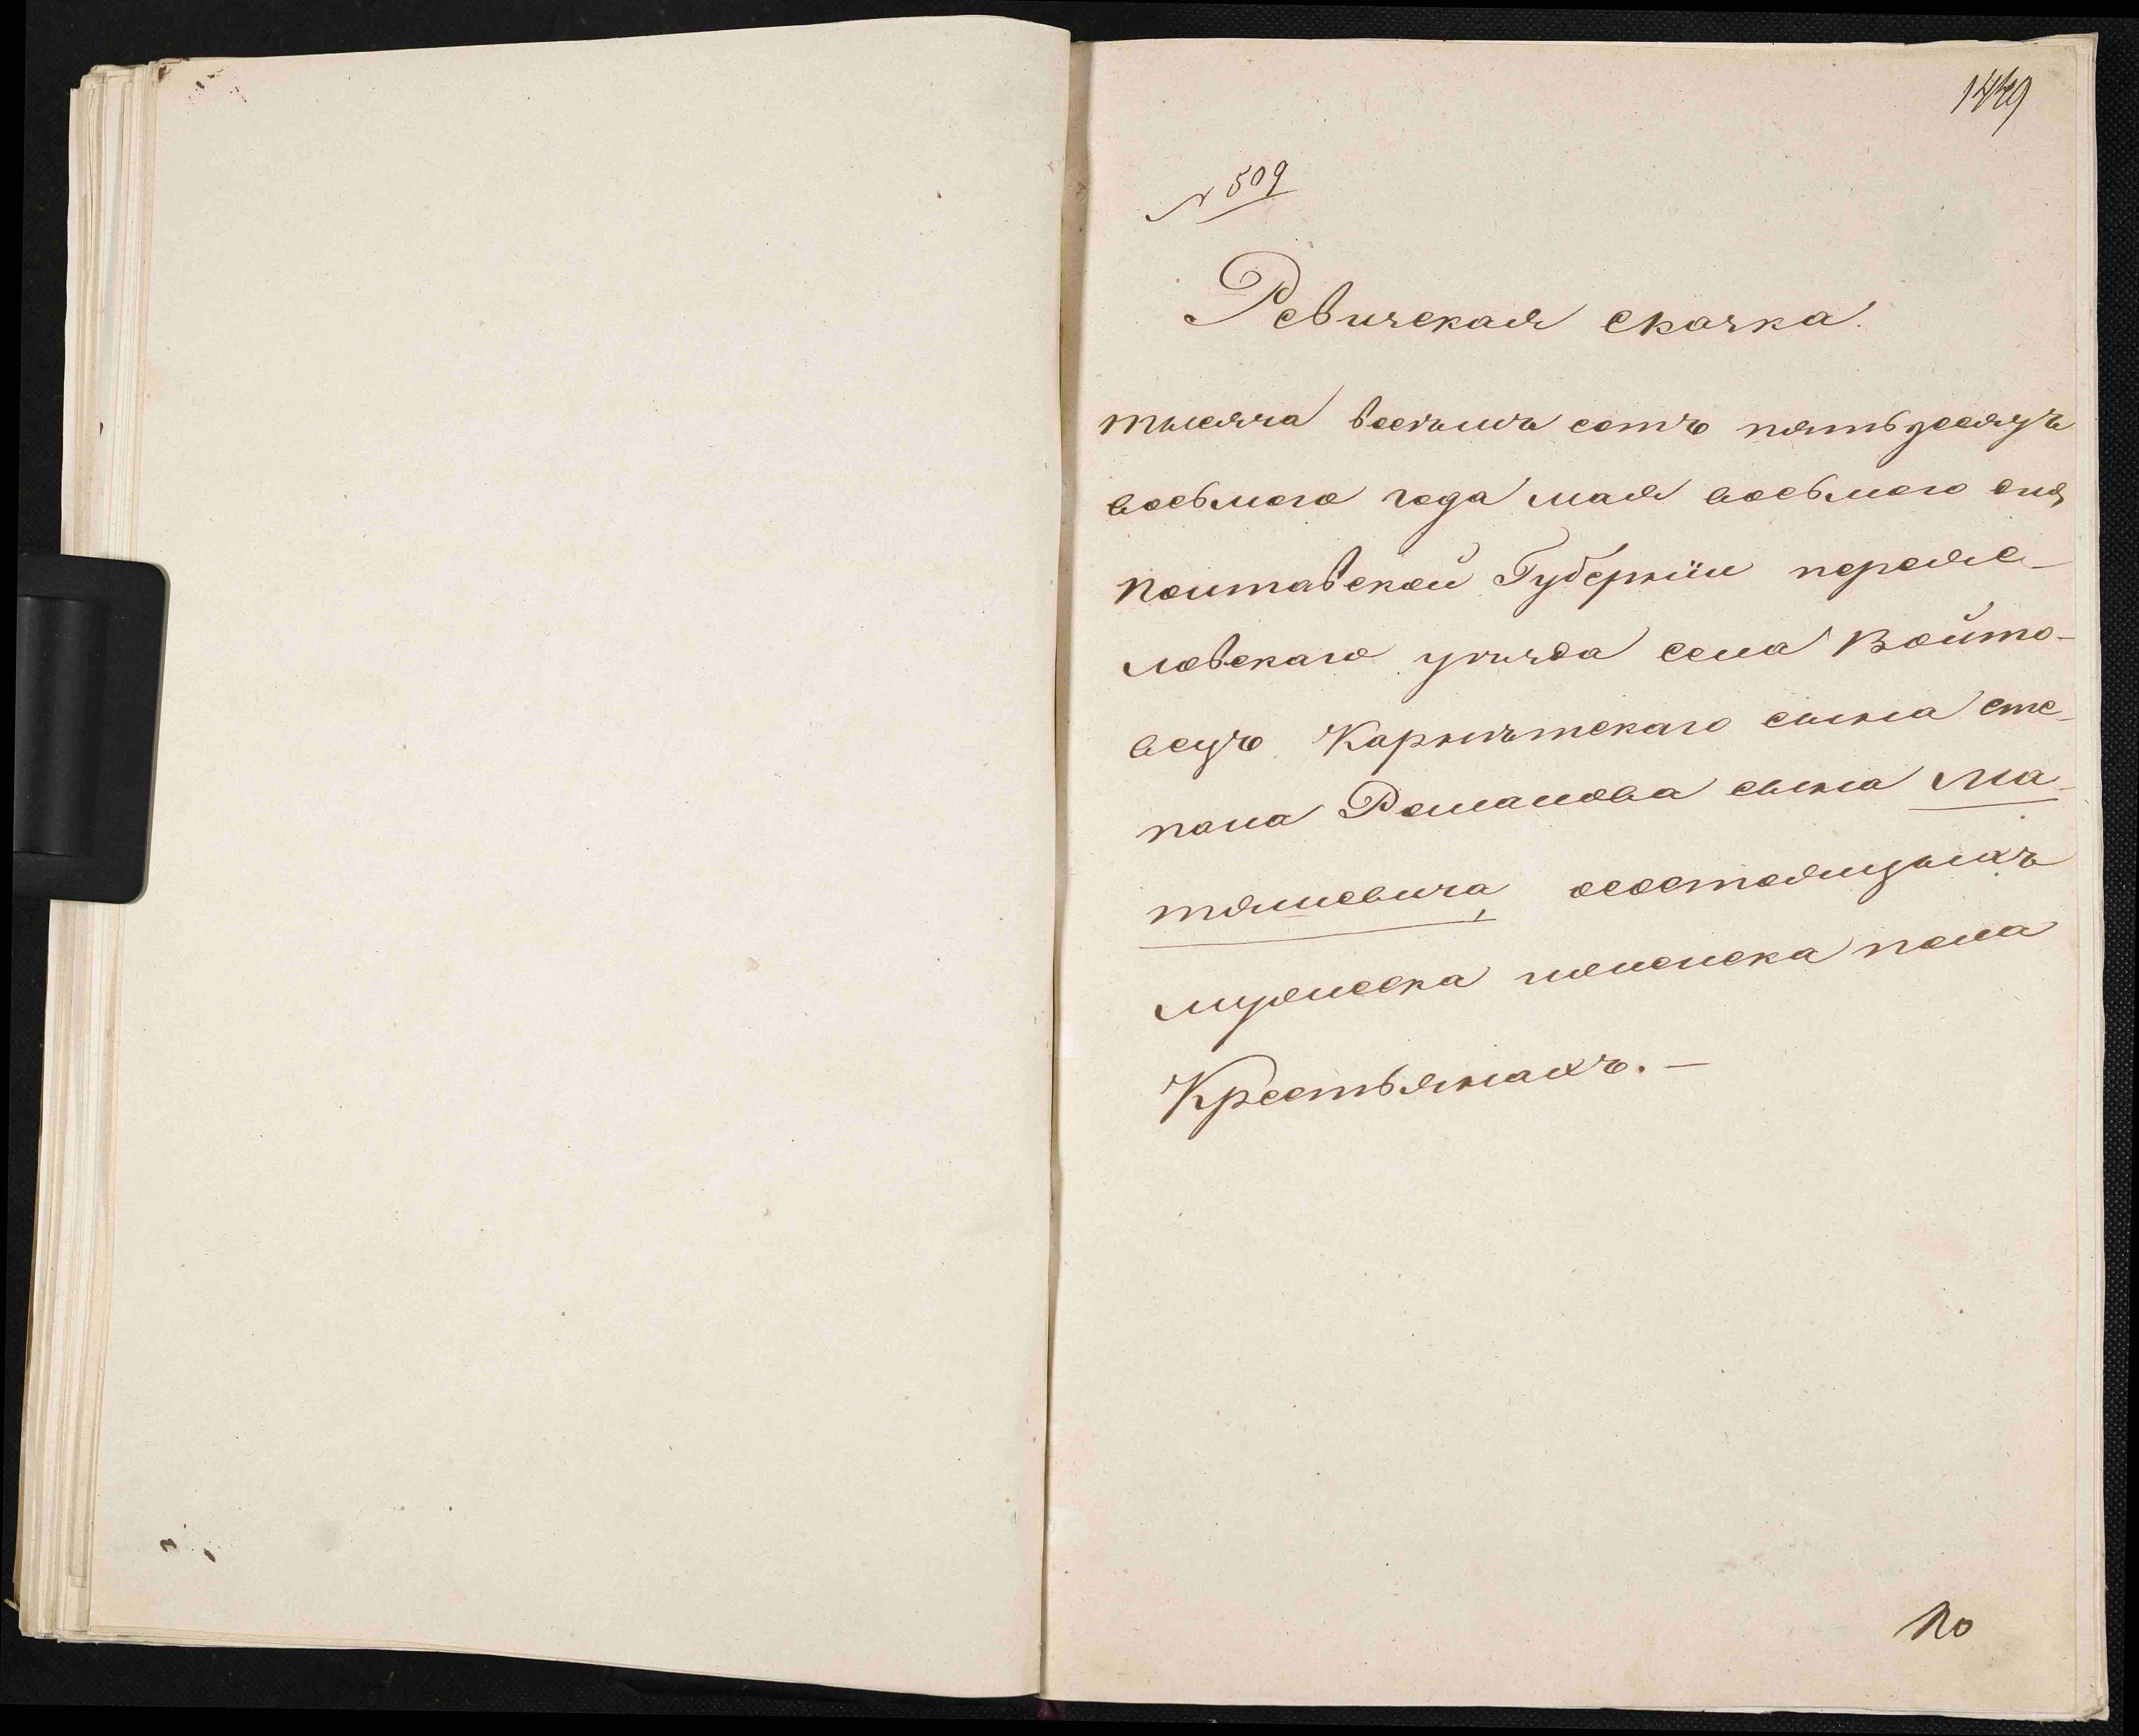 № 509
Ревизская сказка.
тысяча восемь сотъ пятьдесятъ
восьмого года мая восьмого дня
полтавской Губерніи переяс-
ловскаго уѣзда села Войто-
вецъ сына Сте-
пана Романова сына Ма-
тяшевича, осостоящыхъ
мужеска женска пола
Крестьянахъ. —
По